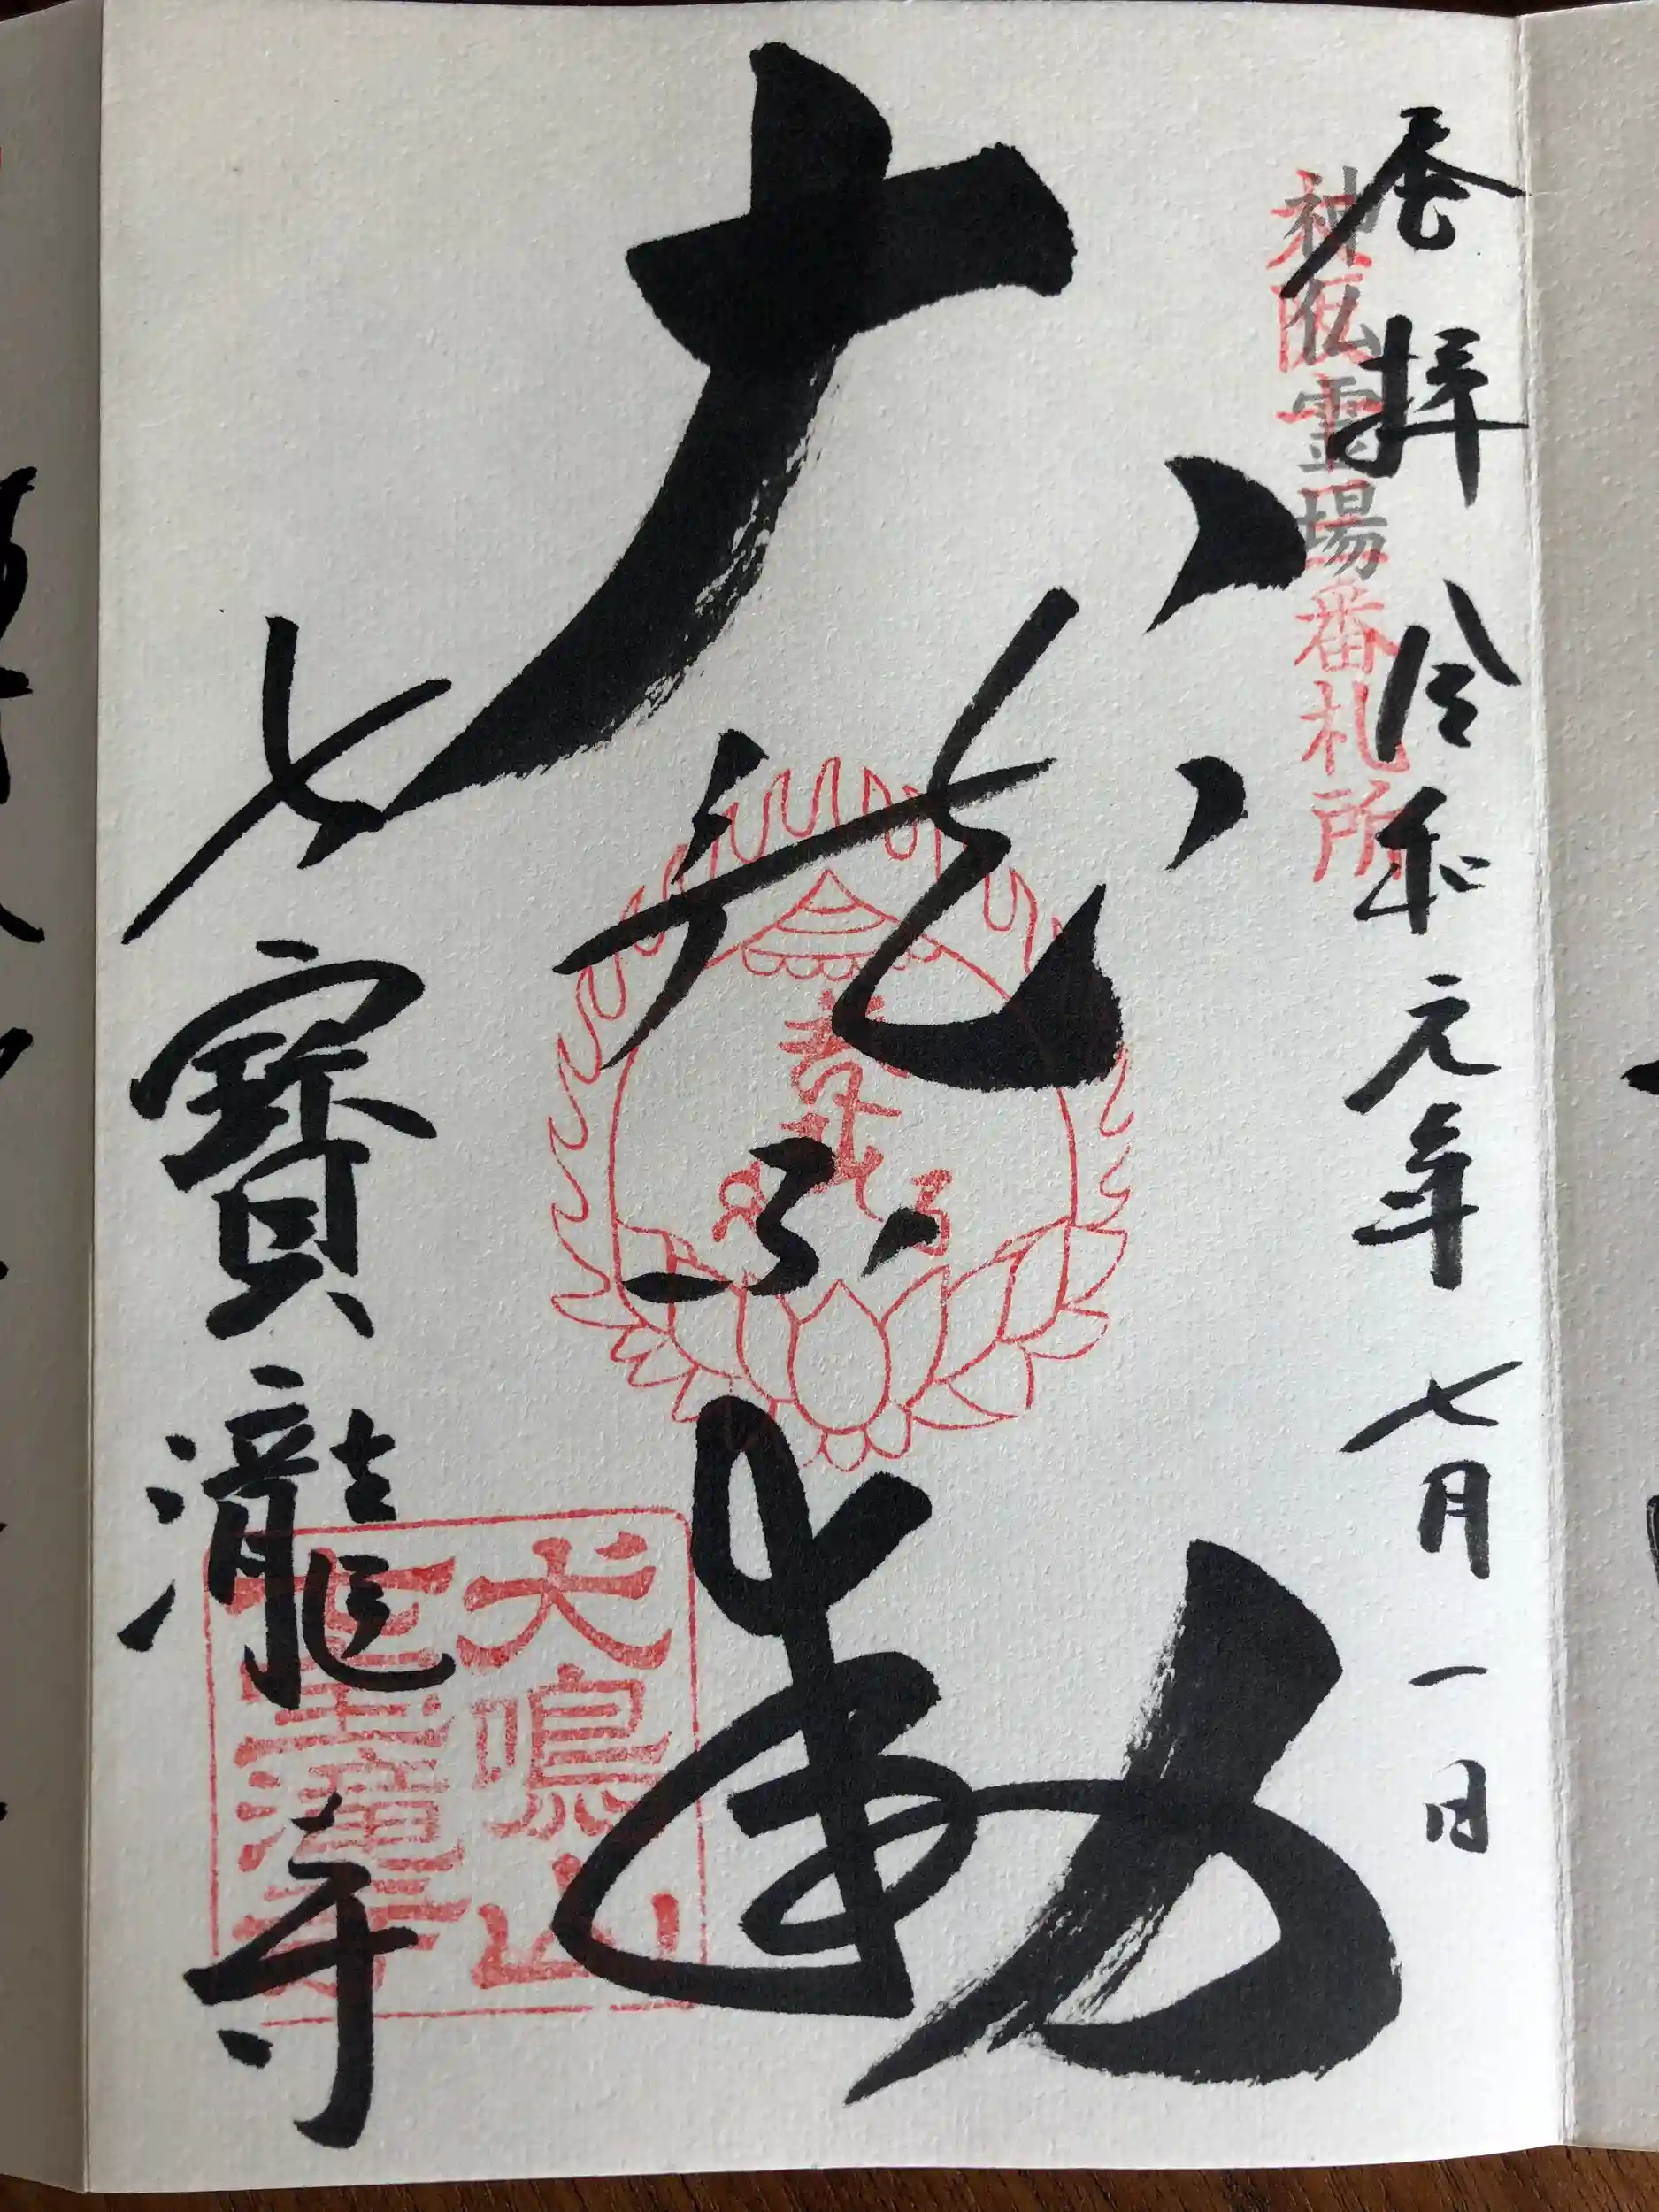 奉拝 令和元年七月一日
神仏霊場
番札所
大龍不動
七寶瀧寺
犬鳴山
七宝瀧寺